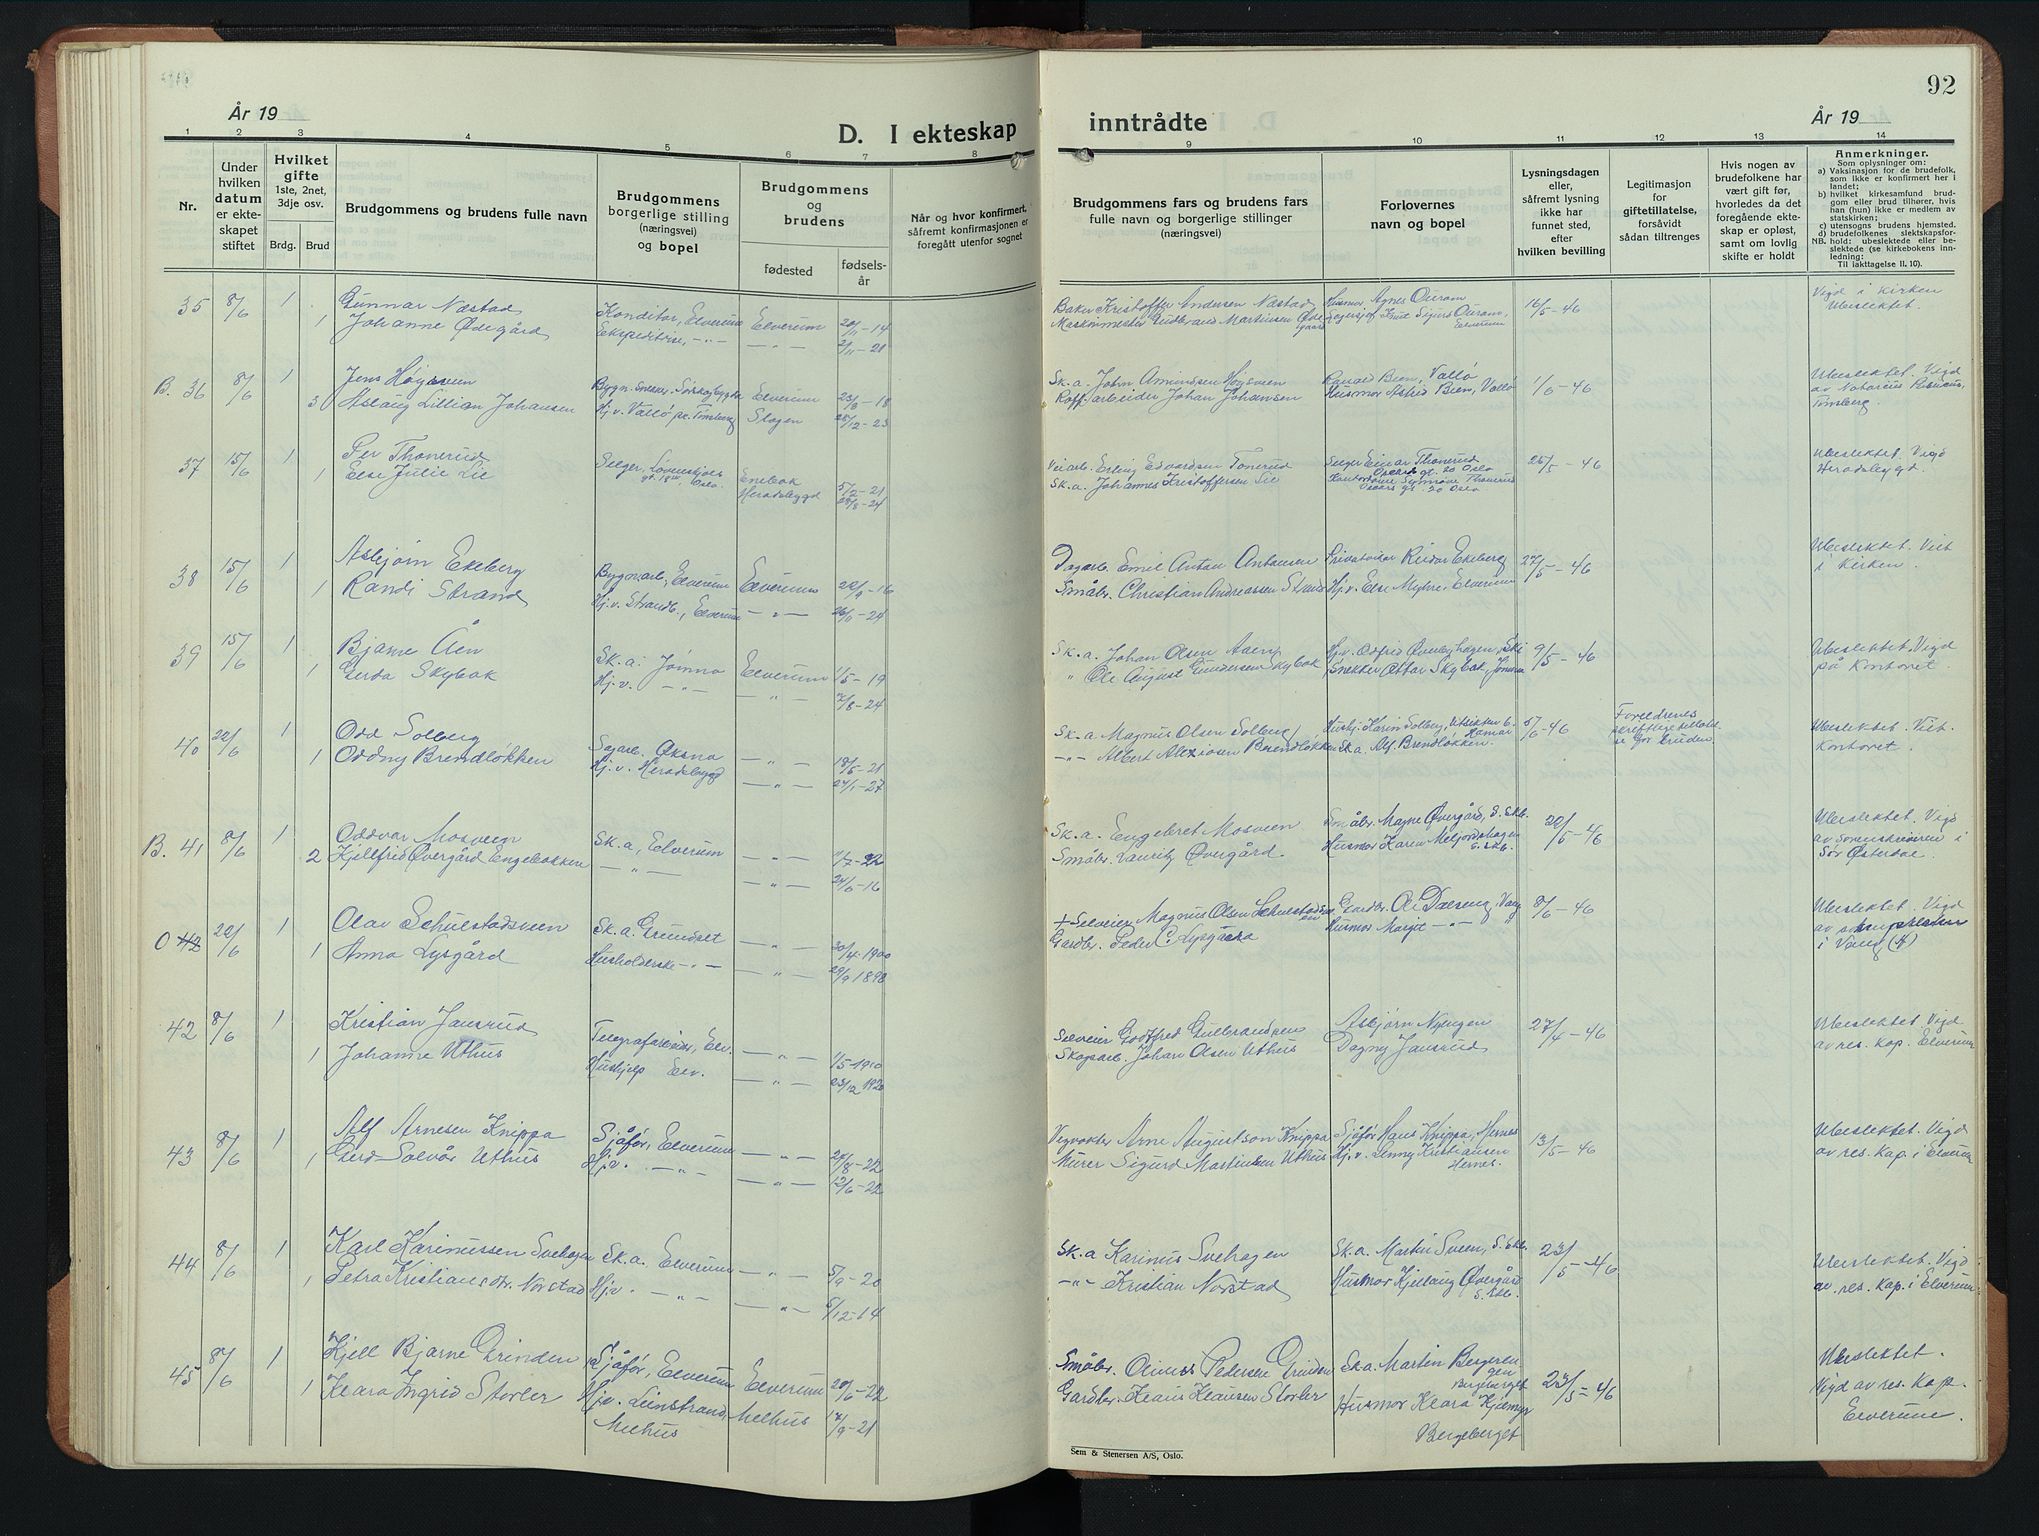 År 19
D. I ekteskap
1 2 3 4 5 6 7 8
Nr.
Under hvilken datum er ekteskapet stiftet
Hvilket gifte
1ste, 2net, 3dje osv.
Brdg. Brud
Brudgommens og brudens fulle navn
Brudgommens borgerlige stilling (næringsvei) og bopel
Brudgommens og brudens
fødested
fødselsår
Når og hvor konfirmert, såfremt konfirmasjonen er foregått utenfor sognet
35 8/6 1 Gunnar Næstad Konditor, Elverum Elverum 20/11-14
1 Johanne Ødegård Ekspeditrise, -"- -"- 2/11-21
B. 36 8/6 1 Jens Høgsveen Bygn.snekker. Sørskogbygda Elverum 23/8-18
3 Aslaug Lillian Johansen Hj.v. Valló pr. Tønsberg Slagen 25/12-23
37 15/6 1 Per Thonerud Selger, Løvenskiolds gt. Oslo. Enebak 5/2-21
1 Else Julie Lie Heradsbygd 29/8-24
38 15/6 1 Asbjørn Ekeberg Bygn.arb., Elverum Elverum 22/9-16
1 Randi Strand Hj.v. Strandb., Elverum -"- 26/11-24
39 15/6 1 Bjarne Åen Sk.a. Jømna Elverum 1/5-19
1 Gerda Skybak Hj.v. -"- -"- 7/8-24
40 22/6 1 Odd Solberg Sagarb. Øksna -"- 18/5-21
1 Oddny Brendløkken Hj.v. Heradsbygd -"- 24/1-27
B. 41 8/6 1 Oddvar Mosveen Sk.a, Elverum -"- 11/7-22
2 Kjellfrid Øvergård Engebakken -"- -"- 24/6-16
0 42 22/6 1 Olav Schulstadsveen Sk.a. Grundset -"- 30/4-1900
1 Anna Lysgård Husholderske -"- -"- 29/9 1898
42 8/6 1 Kristian Jansrud Telegrafarbeider, Elv. -"- 1/5-1910
1 Johanne Uthus Hushjelp Elv. -"- 23/12 1920
43 8/6 1 Alf Arnesen Knippa Sjåfør, Elverum -"- 29/8-22
1 Gerd Solvår Uthus Hj.v. -"- -"- 12/6-22
44 8/6 1 Karl Karinussen Svehagen Sk.a. Elverum -"- 5/9-20
1 Petra Kristiansdtr. Norstad Hj.v. -"- -"- 6/12-14
45 8/6 1 Kjell Bjarne Grinden Sjåfør, Elverum Elverum 20/6-22
1 Klara Ingrid Storler Hjv. Leinstrand, Melhus 17/9-21
Melhus
92
inntrådte
År 19
9 10 11 12 13 14
Brudgommens fars og brudens fars fulle navn og borgerlige stillinger (næringsvei)
Forlovernes navn og bopel
Lysningsdagen eller, såfremt lysning ikke har funnet sted, efter hvilken bevilling
Legitimasjon for giftetillatelse, forsåvidt sådan tiltrenges
Hvis nogen av brudefolkene har vært gift før, hvorledes da det foregående ekteskap er opløst, samt om lovlig skifte er holdt
Anmerkninger.
Som oplysninger om:
a) Vaksinasjon for de brudefolk, som ikke er konfirmert her i landet;
b) hvilket kirkesamfund brudgom eller brud tilhører, hvis han (hun) ikke er medlem av statskirken;
c) utensogns brudens hjemsted.
d) brudefolkenes slektskapsforhold: ubeslektede eller beslektede (se kirkebokens innledning:
NB.
Til iakttagelse II. 10).
Baker Kristoffer Andersen Næstad Husmor Agnes Ouram 16/5-46 Vigd i kirken
Maskinmester Gudbrand Martinsen Ødegaard Lagersjef Knut Sigurd Ouram, Elverum Ubeslektet.
Sk.a. John Amundsen Høgsveen Ragnar Bien, Valló 1/6-46 Ubeslektet. Vigd
Raff.arbeider Johan Johansen Husmor Astrid Bien, Valló av Notarius Publicus, Tønsberg.
Veiarb. Erling Edvardsen Tonerud Selger Einar Thonerud Oscars gt. 20 Oslo 25/5-46 Ubeslektet. Vigd
Sk.a. Johannes Kristoffersen Lie Kontordame Synnøve Thonerud Oscars gt. 20 Oslo Heradsbygd.
Dagarb. Emil Anton Antonsen Privatvisar Reidar Ekeberg 27/5-46 Ubeslektet. Viet
Småbr. Christian Andreassen Strand Hj.v. Else Myhre, Elverum i kirken.
Sk.a. Johan Olsen Aaen Hj.v. Odfrid Øverbyhagen, Ski 9/5-46 Ubeslektet. Vigd
" Ole August Gundersen Skybak Snekker Ottar Skybak, Jømna på kontoret.
Sk.a Magnus Olsen Solberg Hushj. Karin Solberg, Utsikten 6. Hamar 5/6-46 Foreldrenes skriftlige tillatelse for bruden. Ubeslektet. Viet.
-"- Albert Alexiosen Brendløkken Sk.a. Alf Brendløkken. kontoret.
Sk.a. Engebret Mosveen Småbr. Magne Øvergård, S. Skb. 20/5-46 Ubeslektet. Vigd
Småbr. Lauritz Øvergård. Husmor Karen Meljordshagen S. Skb. av Sorenskriveren i
Sør Østerdal.
+ Selveier Magnus Olsen Schulstadsveen Gardbr. Ole Dælseng, Vang 8/6-46 Ubeslektet. Vigd
Gardbr. Peder C. Lysgaard Husmor Margit -"- " av sokneprestene
i Vang (H)
Selveier Godtfred Gulbrandsen Asbjørn Nyengen 27/4-46 Ubeslektet. Vigd
Skogarb. Johan Olsen Uthus Dagny Jansrud av res. kap. Elverum
Vegvokter Arne Augustson Knippa Sjåfør Hans Knippa, Hernes 13/5-46 Ubeslektet. Vigd
Murer Sigurd Martinsen Uthus Hj.v. Jenny Kristiansen Hernes. av res. kap. i Elverum
Sk.a Karinus Svehagen Sk.a. Martin Sveen, S. Skb. 23/5-46 Ubeslektet. Vigd
-"- Kristian Norstad Husmor Kjellaug Øvergård S. Skb. av. res. kap. i Elverum.
Småbr. Olinus Pedersen Grinden Sk.a. Martin Bergerengen Bergeberget 23/5-46 Ubeslektet.
Gardbr. Klaus Klausen Storler Husmor Klara Kjelmyr Vigd av res. kap.
Bergeberget Elverum.
Sem & Stenersen A/S, Oslo.